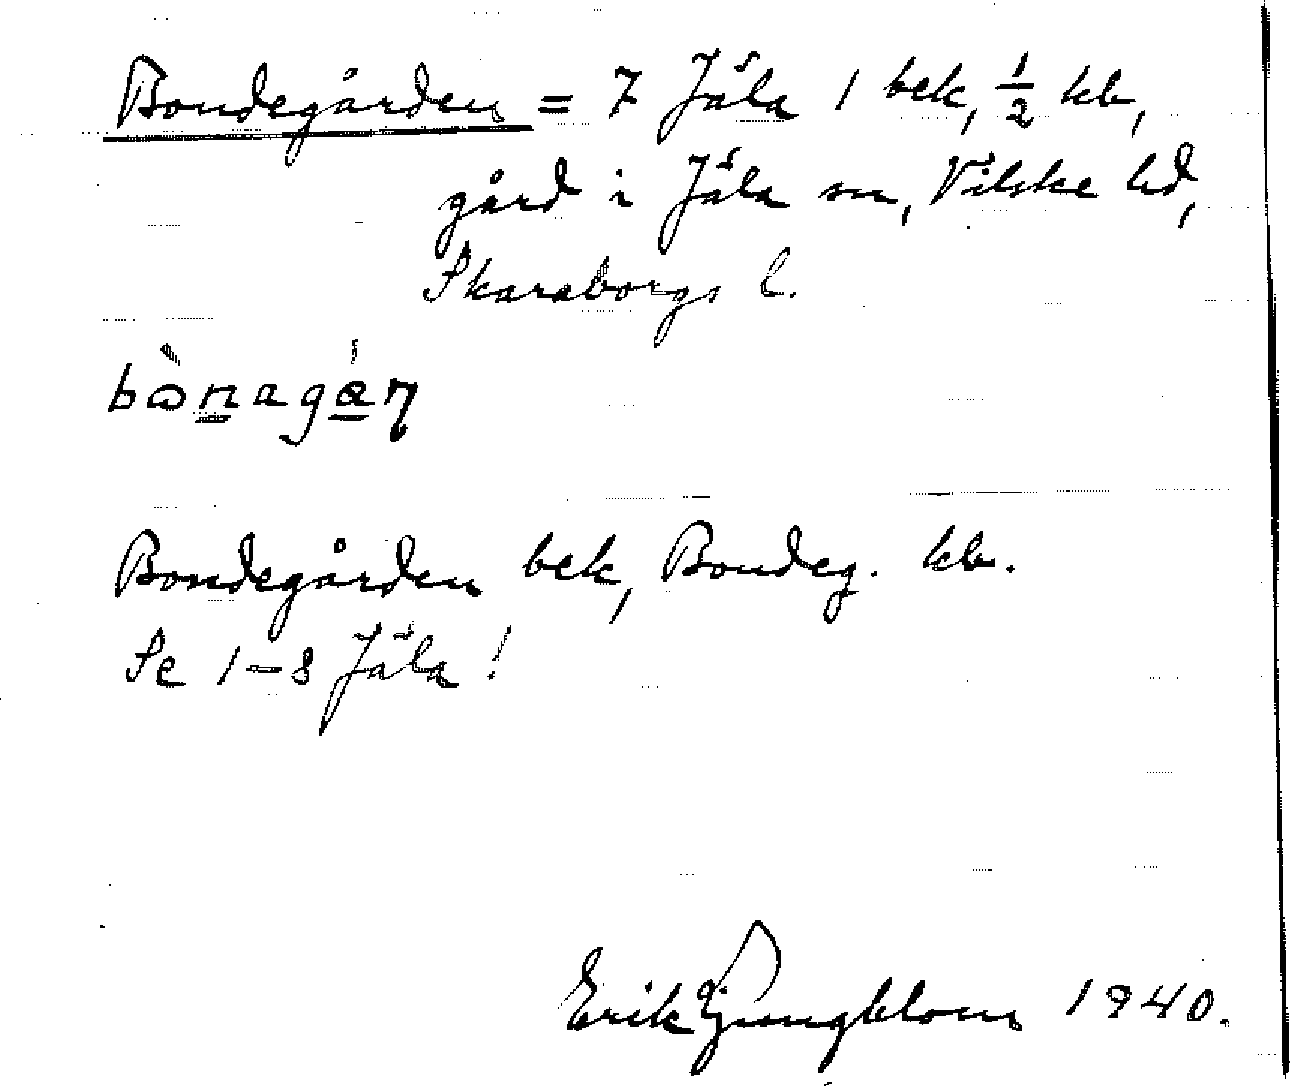 Bondegården = 7 Jäla 1 bek, ½ kb,
gård i Jäla sn, Vilske hd,
Skaraborgs l.
Bondegården bek, Bondeg. kb.
Se 1-8 Jäla!
Erik Ljungblom 1940.